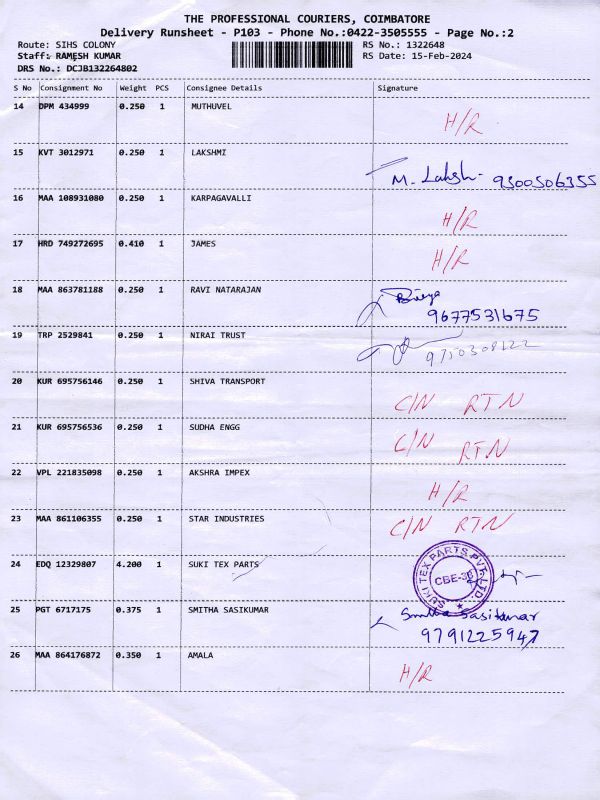 THE PROFESSIONAL COURIERS, COIMBATORE
Delivery Runsheet - P103 - Phone No.:0422-3505555 - Page No.:2
Route: SIHS COLONY RS No.: 1322648
Staff: RAMESH KUMAR RS Date: 15-Feb-2024
DRS No.: DCJB132264802
S No Consignment No Weight PCS Consignee Details Signature
14 DPM 434999 0.250 1 MUTHUVEL H/R
15 KVT 3012971 0.250 1 LAKSHMI M. Laksh- 9500506355
16 MAA 108931080 0.250 1 KARPAGAVALLI H/R
17 HRD 749272695 0.410 1 JAMES H/R
18 MAA 863781188 0.250 1 RAVI NATARAJAN
9677531675
19 TRP 2529841 0.250 1 NIRAI TRUST 9750308122
20 KUR 695756146 0.250 1 SHIVA TRANSPORT C/N RTN
21 KUR 695756536 0.250 1 SUDHA ENGG C/N RTN
22 VPL 221835098 0.250 1 AKSHRA IMPEX H/R
23 MAA 861106355 0.250 1 STAR INDUSTRIES C/N RTN
24 EDQ 12329807 4.200 1 SUKI TEX PARTS SUKI TEX PARTS PVT. LTD. CBE-38
25 PGT 6717175 0.375 1 SMITHA SASIKUMAR Smitha Sasikumar
9791225947
26 MAA 864176872 0.350 1 AMALA H/R